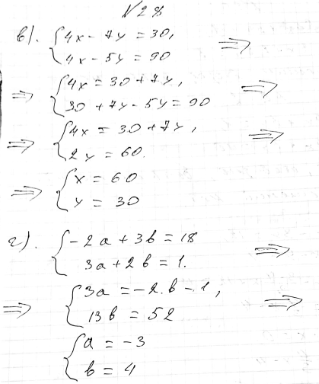 №28
в). { 4x - 7y = 30, ⇒
4x - 5y = 90
⇒ { 4x = 30 + 7y, ⇒
30 + 7y - 5y = 90
⇒ { 4x = 30 + 7y, ⇒
2y = 60.
⇒ { x = 60
y = 30
г). { -2a + 3b = 18 ⇒
3a + 2b = 1.
⇒ { 3a = -2b - 1, ⇒
13b = 52
{ a = -3
b = 4